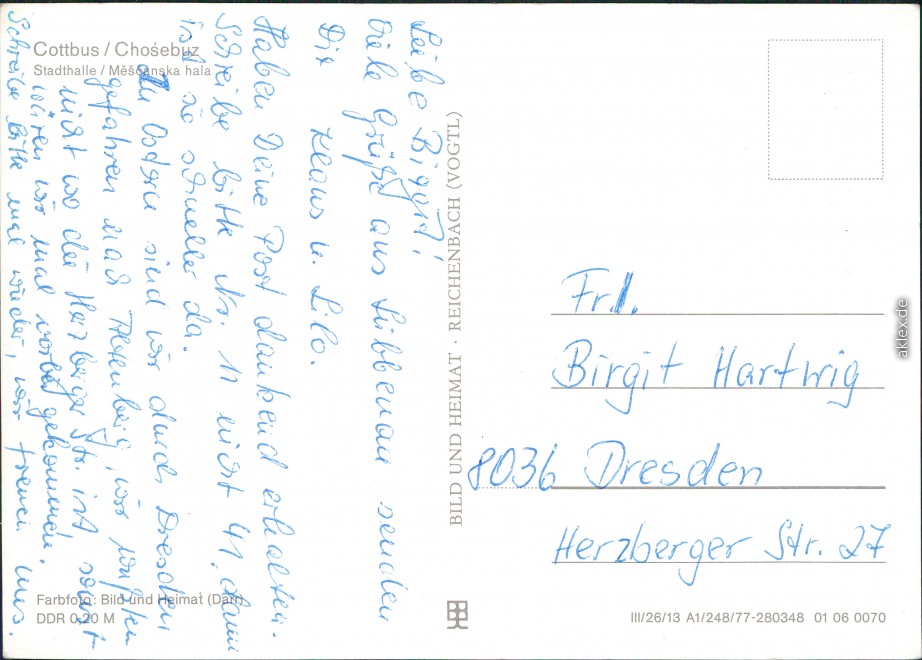 Cottbus / Chośebuz
Stadthalle / Měšćanska hala
Leibe Biggit!
Viele Grüße aus Lübbenau senden
Dir Klaus u. Lilo.
Haben Deine Post dankend erhalten.
Schreibe bitte Nr. 11 nicht 41. dann
ist sie schneller da.
Zu Ostern sind wir durch Dresden
gefahren nach Altenberg, wir wußten
nicht wo die Herzberger Str. ist sonst
wären wir mal vorbei gekommen.
Schreibe bitte mal wieder, wir freuen uns.
Farbfoto: Bild und Heimat (Darr)
DDR 0,20 M
BILD UND HEIMAT · REICHENBACH (VOGTL)
Frl.
Birgit Hartwig
8036 Dresden
Herzberger Str. 27
III/26/13 A1/248/77-280348 01 06 0070
aklex.de